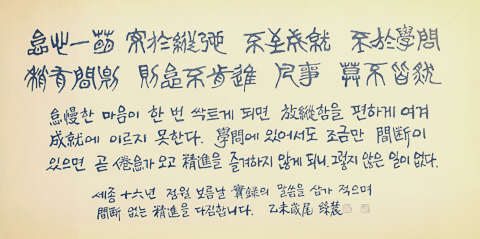 怠心一萌 安於縱弛 不至成就 其於學問
稍有間斷 則怠不肯進 凡事 莫不皆然
怠慢한 마음이 한 번 싹트게 되면 放縱함을 편하게 여겨
成就에 이르지 못한다. 學問에 있어서도 조금만 間斷이
있으면 곧 倦怠가 오고 精進을 즐겨하지 않게 되니, 그렇지 않은 일이 없다.
세종 十六年 정월 보름날 實錄의 말씀을 삼가 적으며
間斷 없는 精進을 다짐합니다. 乙未歲尾